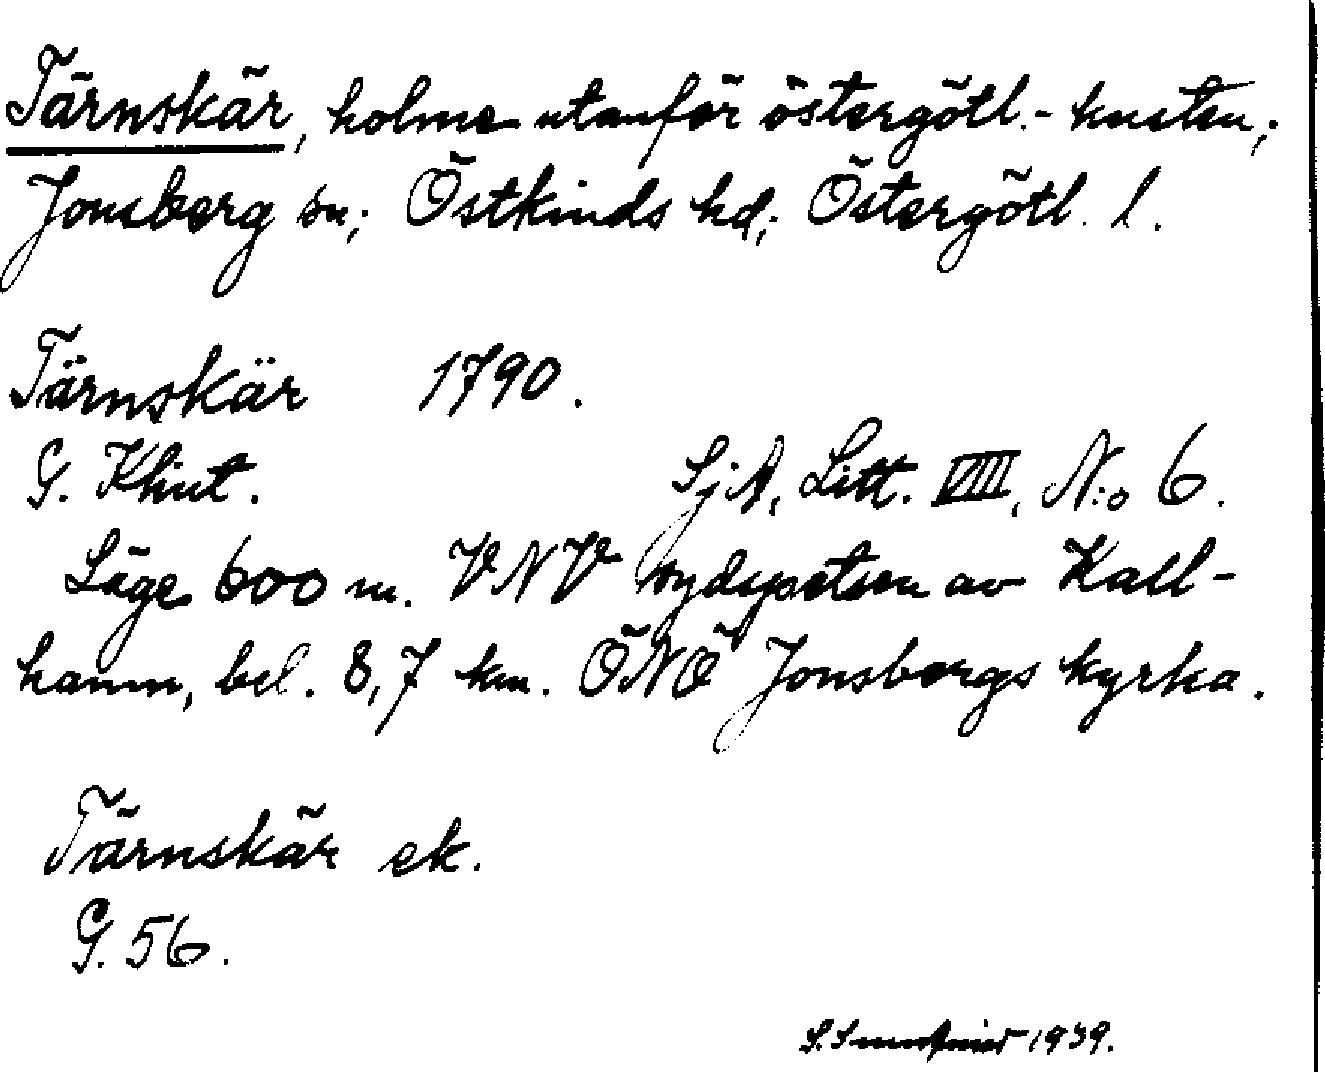 Tärnskär, holme utanför östergötl.-kusten;
Jonsberg sn; Östkinds hd; Östergötl. l.
Tärnskär 1790.
G. Klint. SjA, Litt. VIII, N:o 6.
Läge 600 m. VNV sydspetsen av Kall-
hamn, bel. 8,7 km. ÖNÖ Jonsbergs kyrka.
Tärnskär ek.
G. 56.
1939.